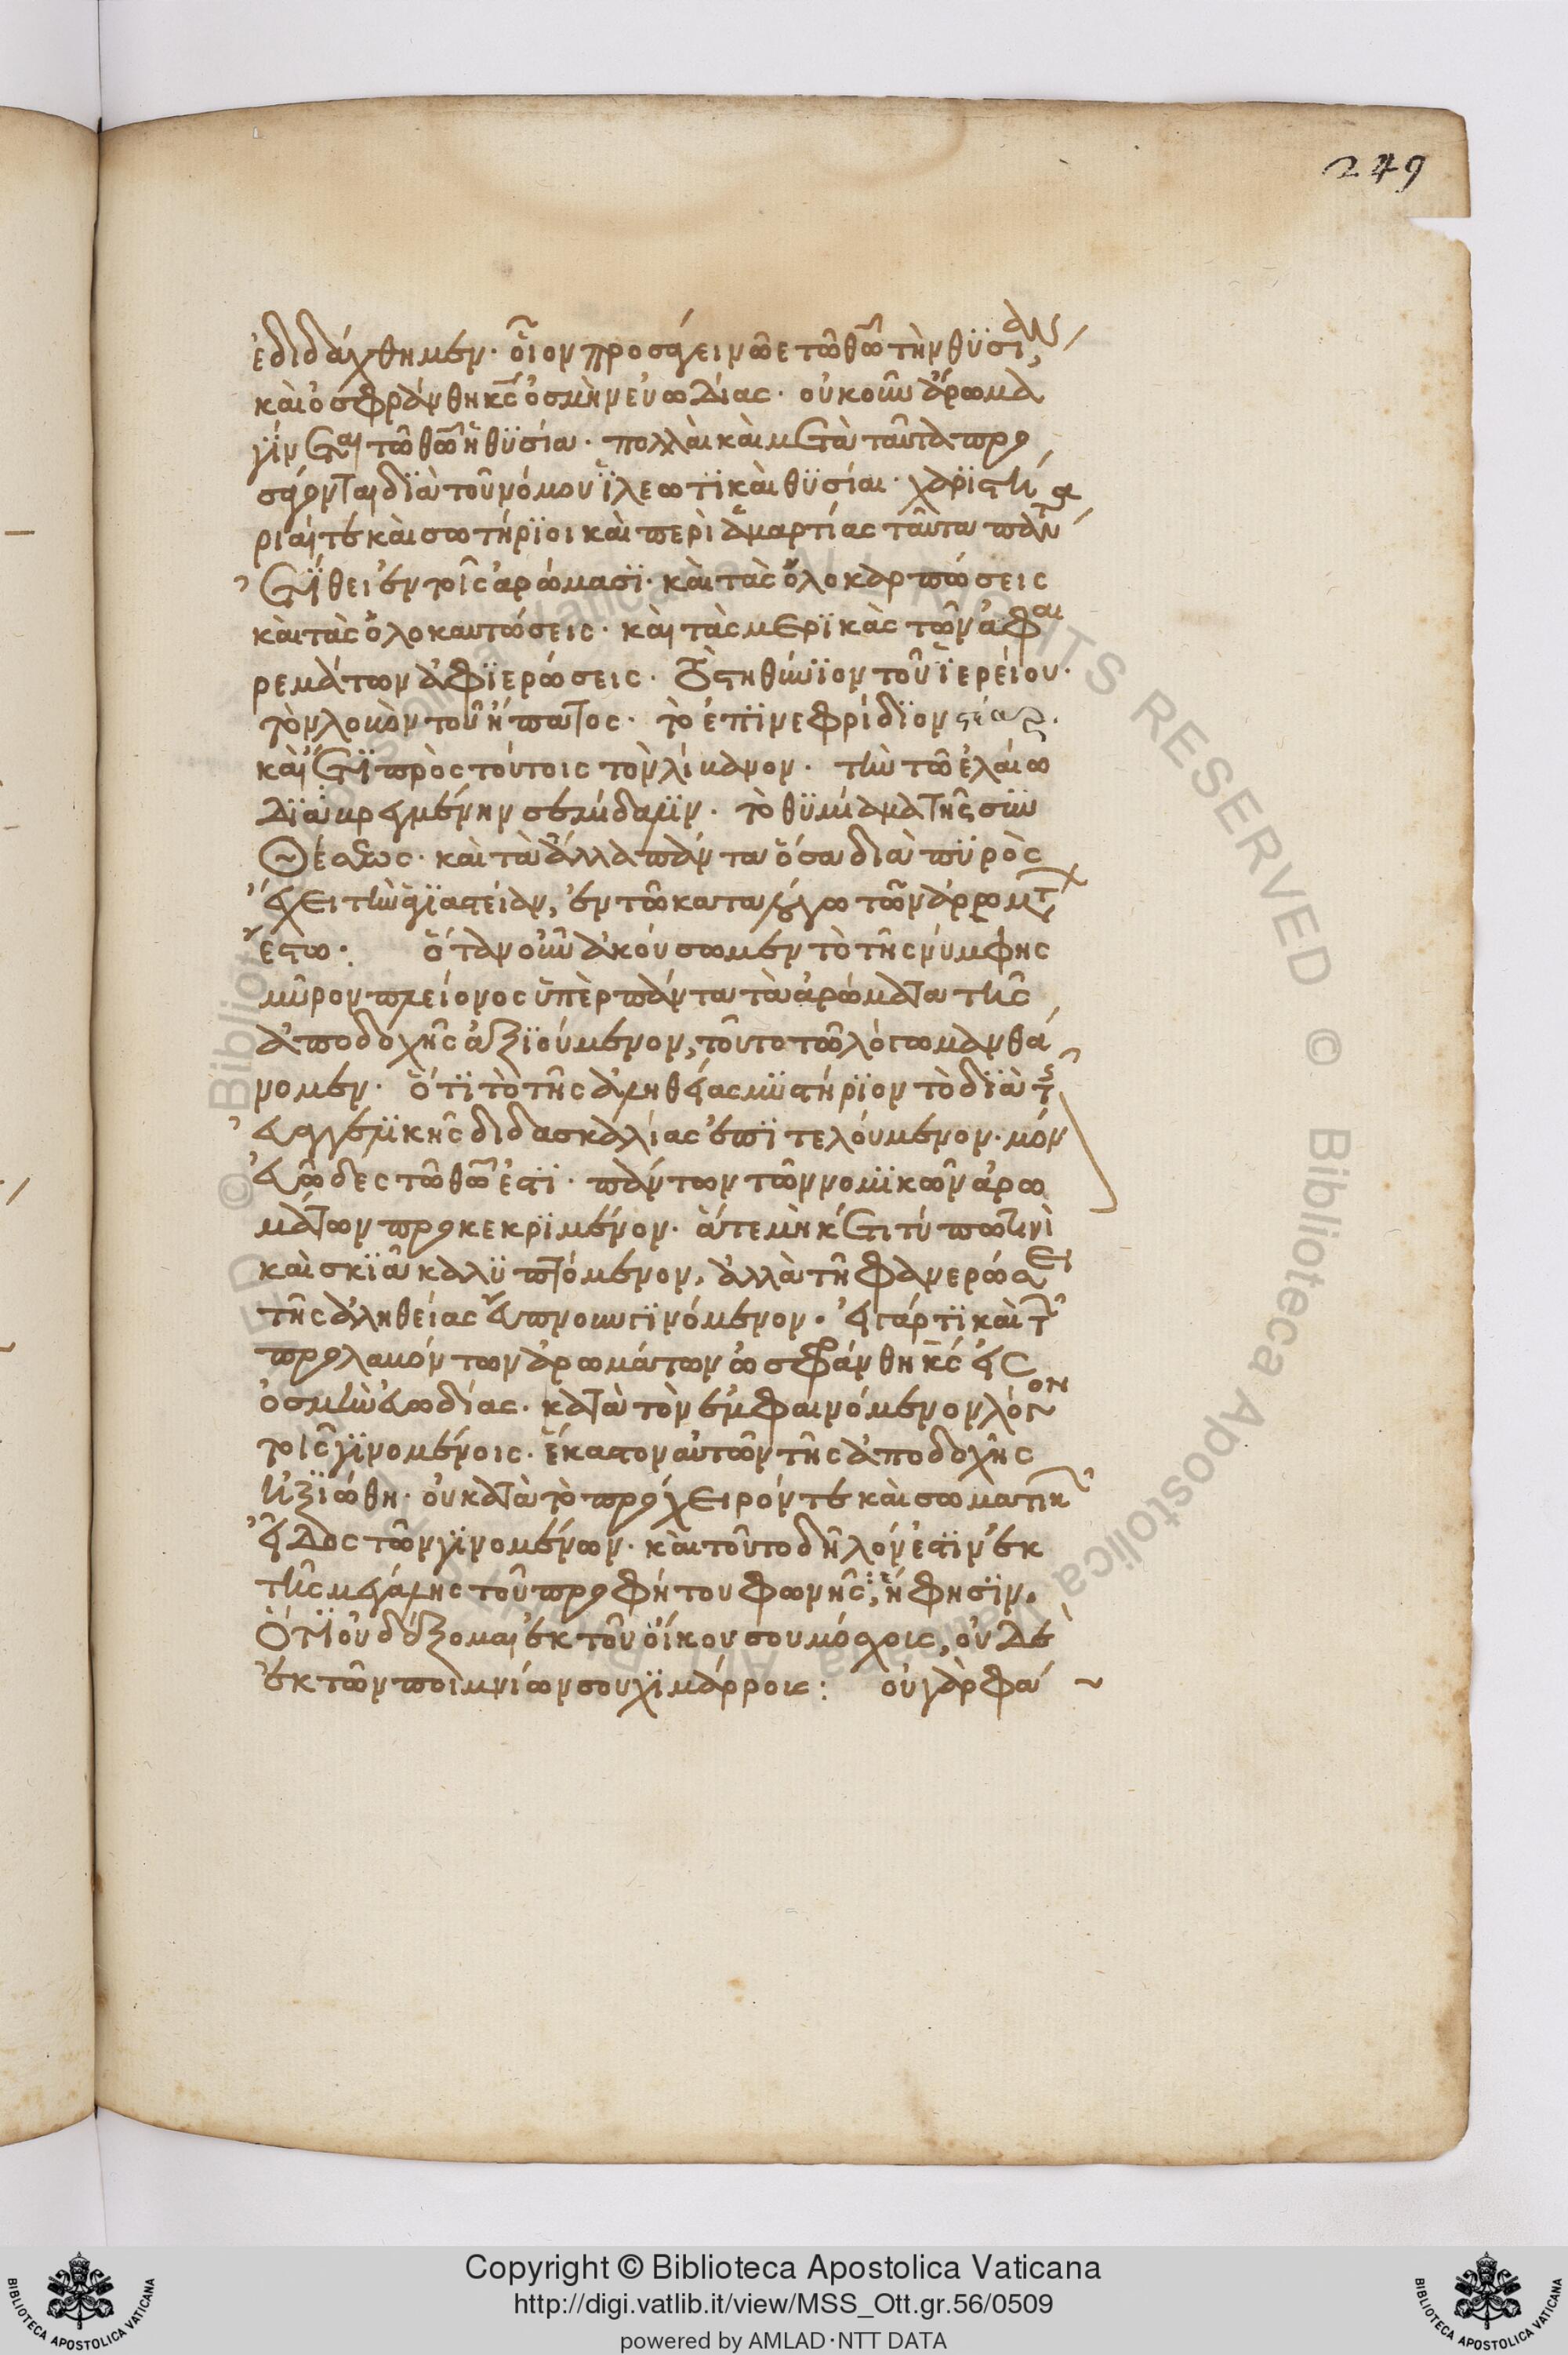 249
ἐδιδάχθημεν· οἷον προσάγει νῶε τῶ θῶ τὴν θϋσίαν,
καὶ ὀσφράνθη κς ὀσμὴν εὐωδίας· οὐκοῦν ἄρωμα
γίνεται τῶ θῶ ἡ θϋσία· πολλαὶ καὶ μετὰ ταῦτα προ
σάγονται διὰ τοῦ νόμου ἱλεωτικαὶ θϋσίαι· χαριστή
ριαί τε καὶ σωτήριοι καὶ περὶ ἁμαρτίας ταῦτα πάντα
ἐτίθει ἐν τοῖς ἀρώμασι· καὶ τὰς ὁλοκαρπώσεις
καὶ τὰς ὁλοκαυτώσεις· καὶ τὰς μερικὰς τῶν ἀφαι
ρεμάτων ἀφϊερώσεις· τὸ στηθύνιον τοῦ ἱερείου·
τὸν λοβὸν τοῦ ἥπατος· τὸ ἐπινεφρίδιον στέαρ·
καὶ ἔτι πρὸς τούτοις τὸν λίβανον· τὴν τῶ ἐλαίω
διαβρεγμένην σεμίδαλιν· τὸ θυμίαμα τῆς συν
θέσεως· καὶ τὰ ἄλλα πάντα ὅσα διὰ πϋρὸς
ἔχει τὴν ἁγιαστείαν, ἐν τῶ καταλόγω τῶν ἀρωμάτων
ἔστω· ὅταν οὖν ἀκούσωμεν τὸ τῆς νύμφης
μῦρον πλείονος ὑπὲρ πάντα τὰ ἀρώματα τῆς
ἀποδοχῆς ἀξιούμενον, τοῦτο τῶ λόγω μανθά
νομεν· ὅτι τὸ τῆς ἀληθείας μϋστήριον τὸ διὰ τῆς
εὐαγγελικῆς διδασκαλίας ἐπιτελούμενον· μόνον
εὐῶδες τῶ θῶ ἐστι· πάντων τῶν νομικῶν ἀρω
μάτων προκεκριμένον· ἅτε μηκέτι τύπω τινὶ
καὶ σκιᾶ καλϋπτόμενον, ἀλλὰ τῆ φανερώσει
τῆς ἀληθείας εὔπνουν γινόμενον· εἰ γάρ τι καὶ τῶν
προλαβόντων ἀρωμάτων ὠσφράνθη κς εἰς
ὀσμὴν εὐωδίας· κατὰ τὸν ἐμφαινόμενον λόγον
τοῖς γινομένοις· ἕκαστον αὐτῶν τῆς ἀποδοχῆς
ἠξιώθη· οὐ κατὰ τὸ πρόχειρόν τε καὶ σωματικὸν
εἶδος τῶν γινομένων· καὶ τοῦτο δῆλόν ἐστιν ἐκ
τῆς μεγάλης τοῦ προφήτου φωνῆς, ἥ φησιν·
Ὅτι οὐ δέξομαι ἐκ τοῦ οἴκου σου μόσχους, οὐδὲ
ἐκ τῶν ποιμνίων σου χιμάρρους: οὐ γὰρ φά
Copyright © Biblioteca Apostolica Vaticana
http://digi.vatlib.it/view/MSS_Ott.gr.56/0509
powered by AMLAD·NTT DATA